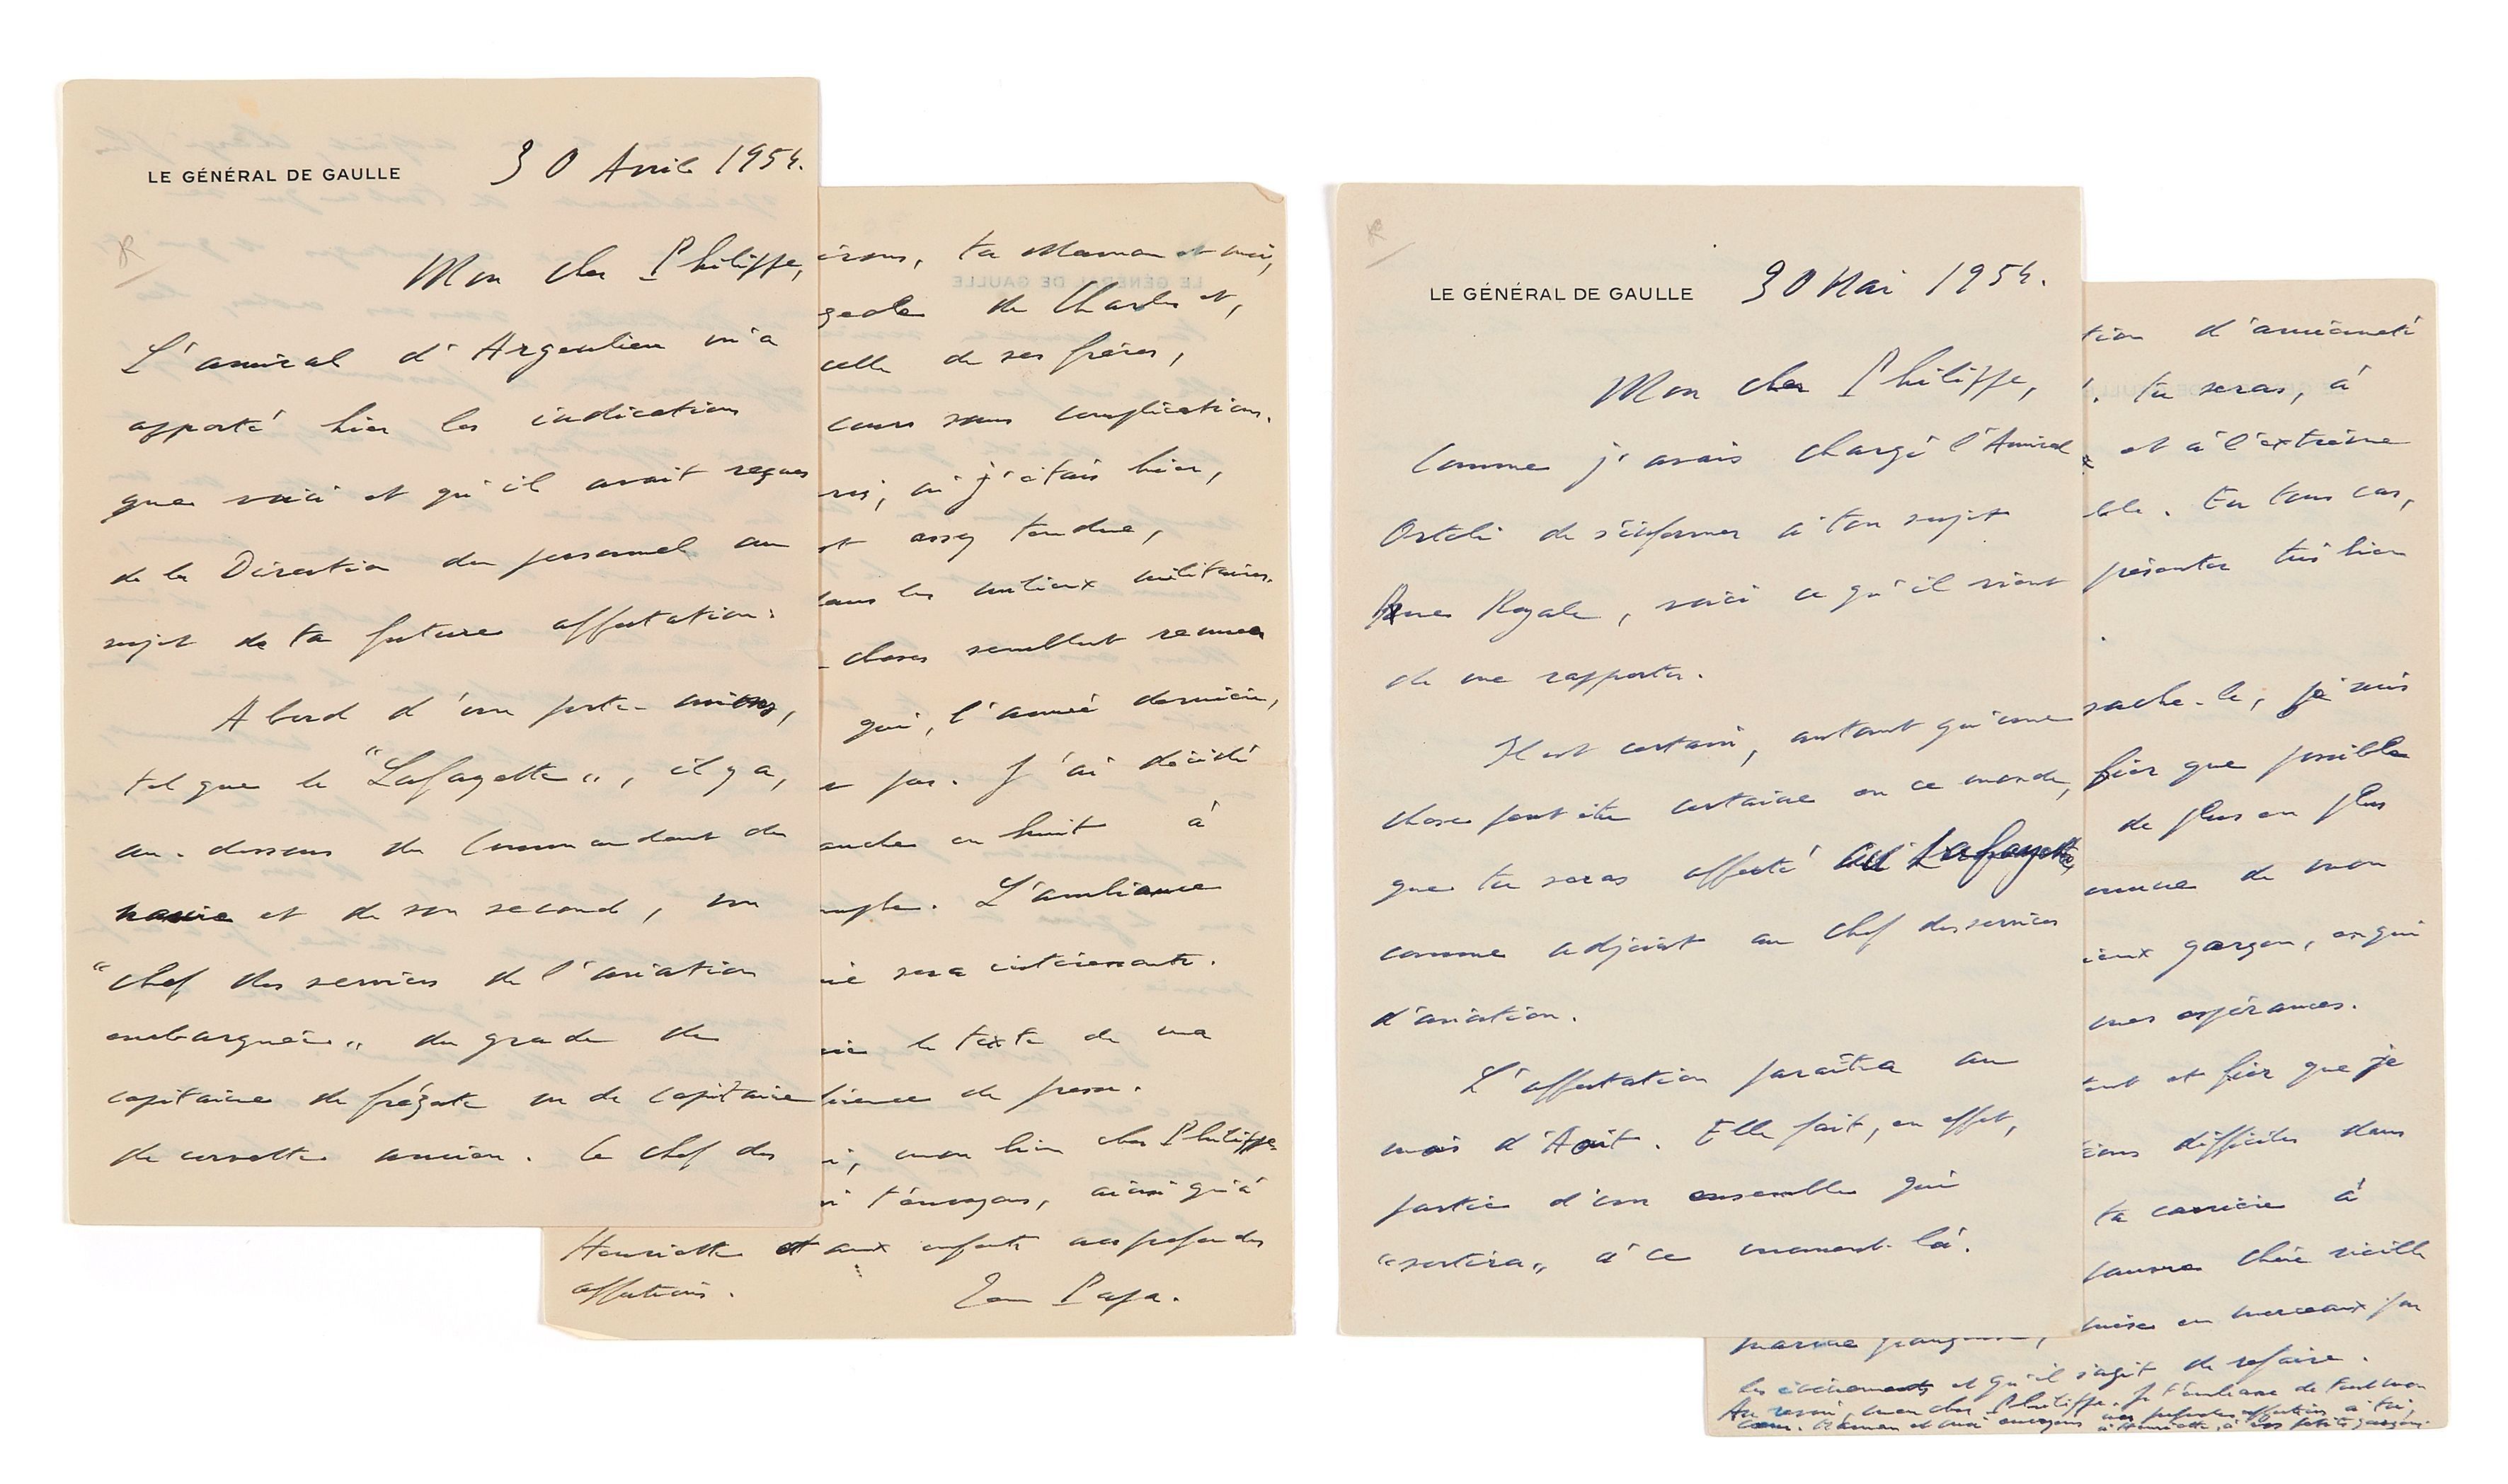 LE GÉNÉRAL DE GAULLE
30 Avril 1954.
Mon cher Philippe,
L'amiral d'Argenlieu m'a
apporté hier les indications
que voici et qu'il avait reçues
de la Direction du personnel au
sujet de ta future affectation:
A bord d'un porte-avions,
tel que le "Lafayette", il y a,
au-dessous du Commandant du
navire et de son second, un
"chef des services de l'aviation
embarquée" du grade de
capitaine de frégate ou de capitaine
de corvette ancien. Le chef des
ta Maman et moi,
de Charles et,
celle de ses frères,
cours sans complications.
où j'étais hier,
assez tendue,
dans les milieux militaires.
choses semblent remuer
qui, l'année dernière,
pas. J'ai décidé
en huit à
L'ambiance
sera intéressante.
le texte de ma
de presse.
mon bien cher Philippe.
t'envoyons, ainsi qu'à
Henriette et aux enfants nos profondes
affections.
Ton Papa.
LE GÉNÉRAL DE GAULLE
30 Mai 1954.
Mon cher Philippe,
Comme j'avais chargé l'Amiral
Ortoli de s'informer à ton sujet
Rue Royale, voici ce qu'il vient
de me rapporter.
Il est certain, autant qu'une
chose peut être certaine en ce monde,
que tu seras affecté au Lafayette,
comme adjoint au chef des services
d'aviation.
L'affectation paraîtra au
mois d'Août. Elle fait, en effet,
partie d'un ensemble qui
"sortira" à ce moment-là.
d'ancienneté
tu seras, à
et à l'extrême
En tous cas,
présenter très bien
sache-le, je suis
fier que possible
de plus en plus
de mon
garçon, en qui
mes espérances.
et fier que je
difficiles dans
ta carrière à
pauvre chère vieille
marine française, mise en morceaux par
les événements et qu'il s'agit de refaire.
Au revoir, mon cher Philippe. Je t'embrasse de tout mon
cœur. Maman et moi envoyons nos profondes affections à toi,
à Henriette, à vos petits garçons.